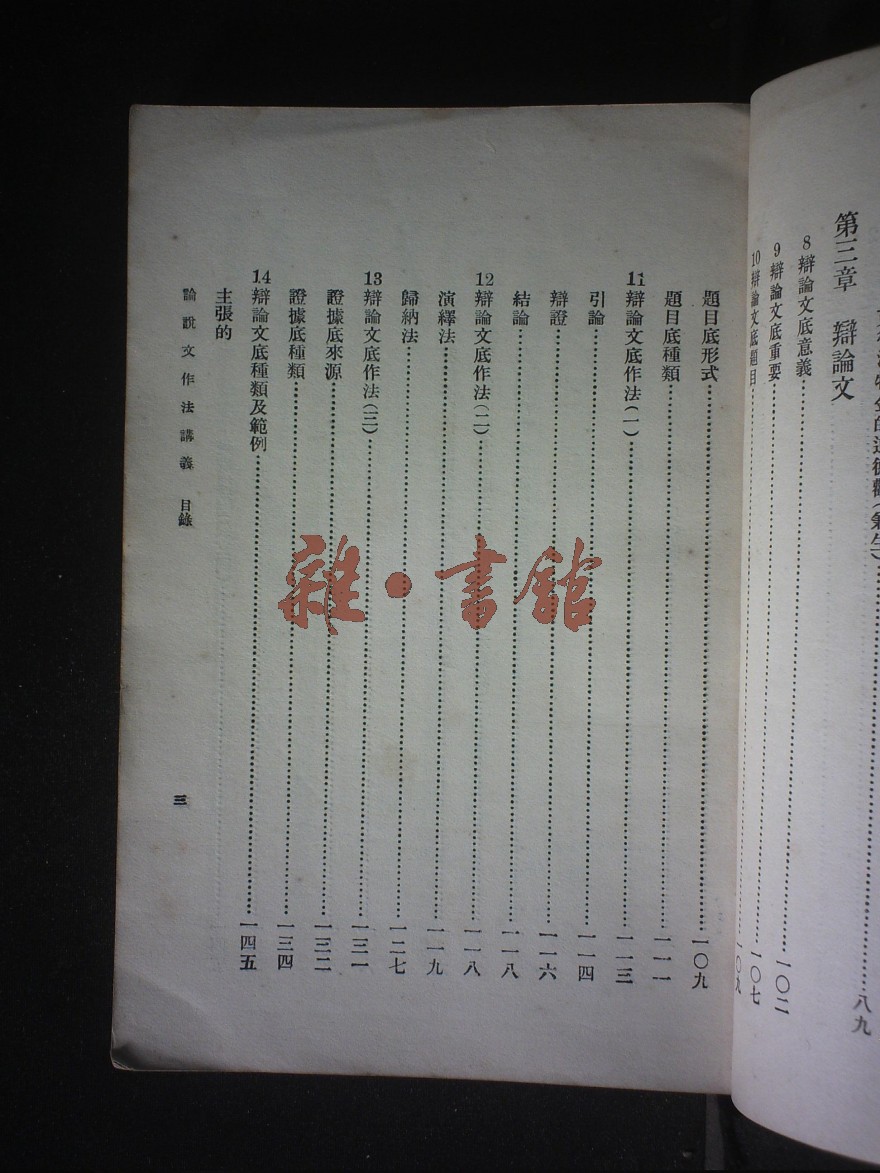 八九
第三章 辯論文
8 辯論文底意義……一〇二
9 辯論文底重要……一〇七
10 辯論文底題目……一〇九
題目底形式……一〇九
題目底種類……一一一
11 辯論文底作法(一)……一一三
引論……一一四
辯證……一一六
結論……一一八
12 辯論文底作法(二)……一一八
演繹法……一一九
歸納法……一二七
13 辯論文底作法(三)……一三一
證據底來源……一三二
證據底種類……一三四
14 辯論文底種類及範例……一四五
主張的
論說文作法講義 目錄
三
雜·書館